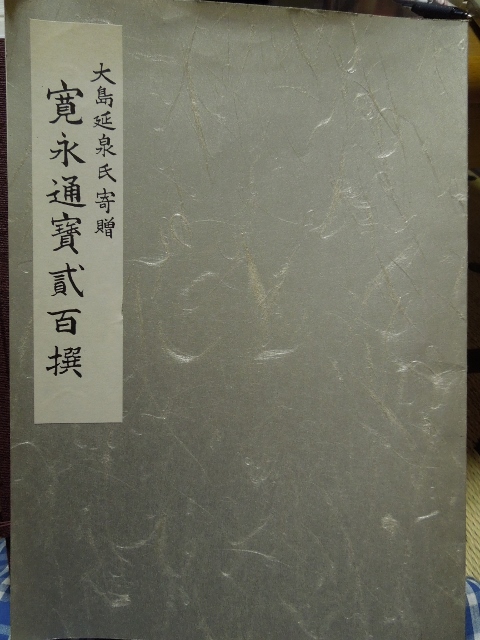 大島延泉氏寄贈
寛永通寳貳百撰